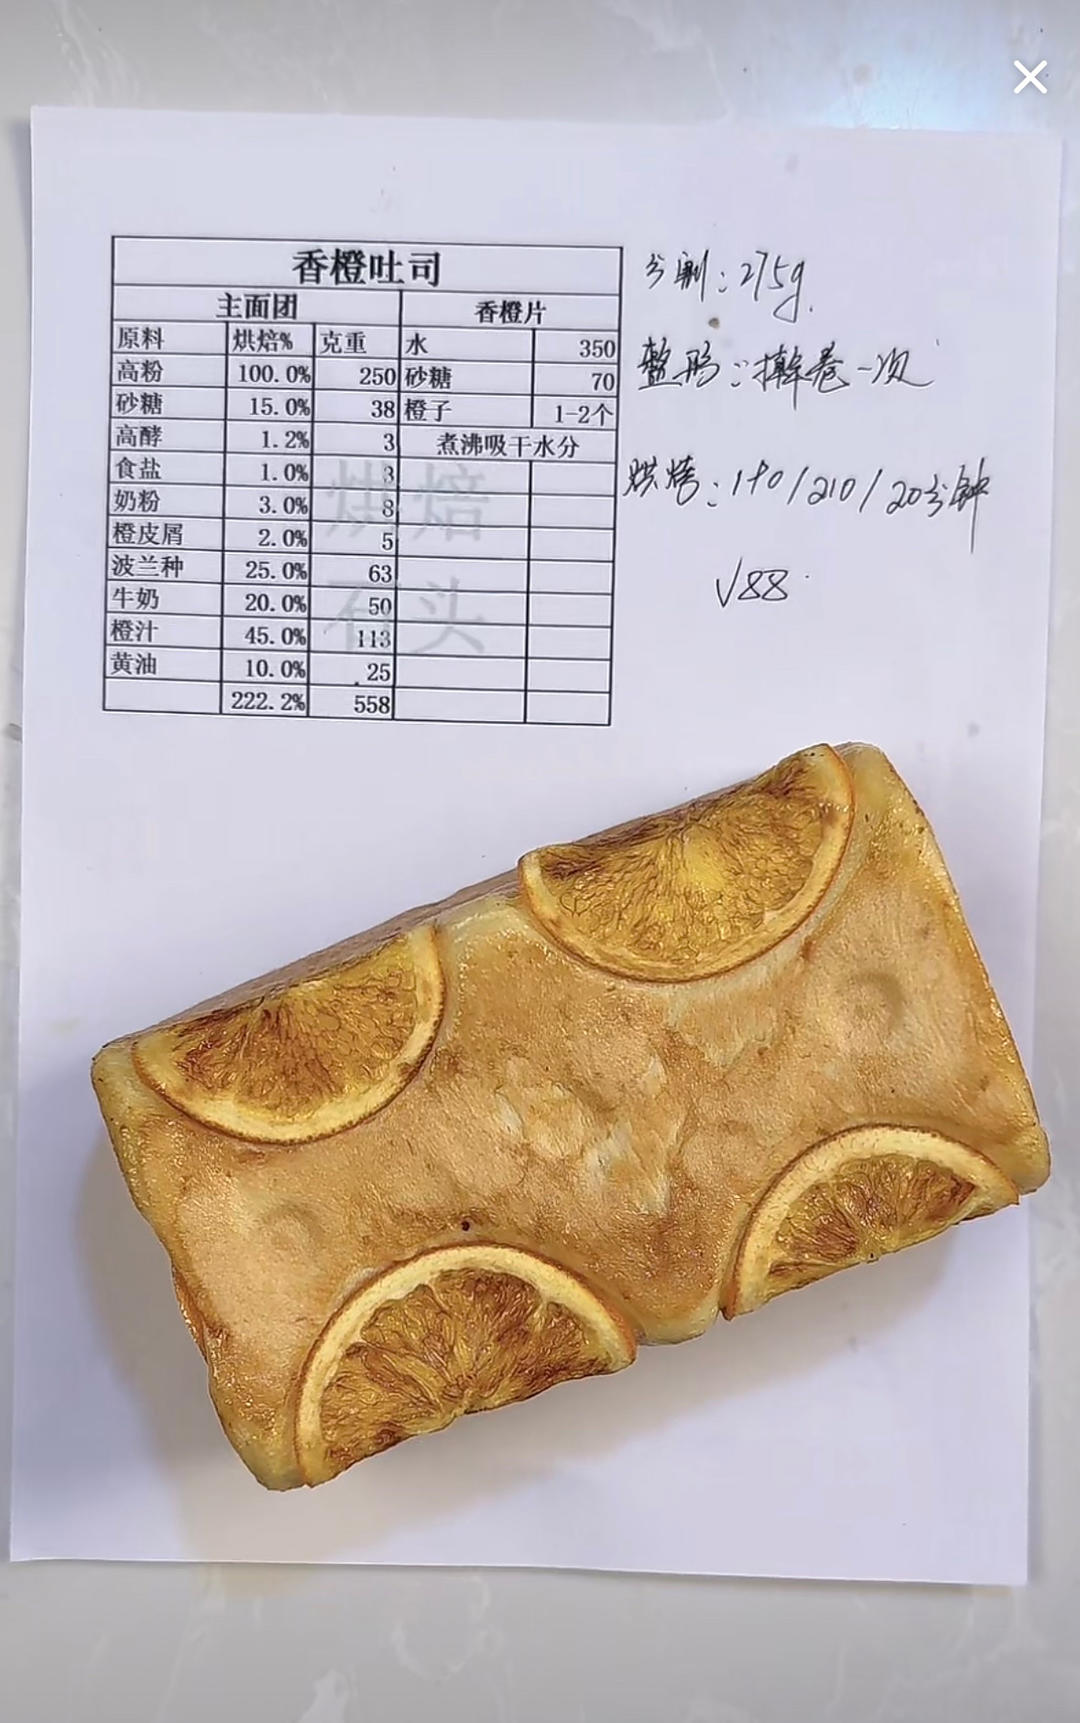 香橙吐司
主面团 香橙片
原料 烘焙% 克重 水 350
高粉 100.0% 250 砂糖 70
砂糖 15.0% 38 橙子 1-2个
高酵 1.2% 3 煮沸吸干水分
食盐 1.0% 3
奶粉 3.0% 8
橙皮屑 2.0% 5
波兰种 25.0% 63
牛奶 20.0% 50
橙汁 45.0% 113
黄油 10.0% 25
222.2% 558
烘焙
石头
分割：275g.
整形：擀卷一次
烘烤：190/210/20分钟
√88